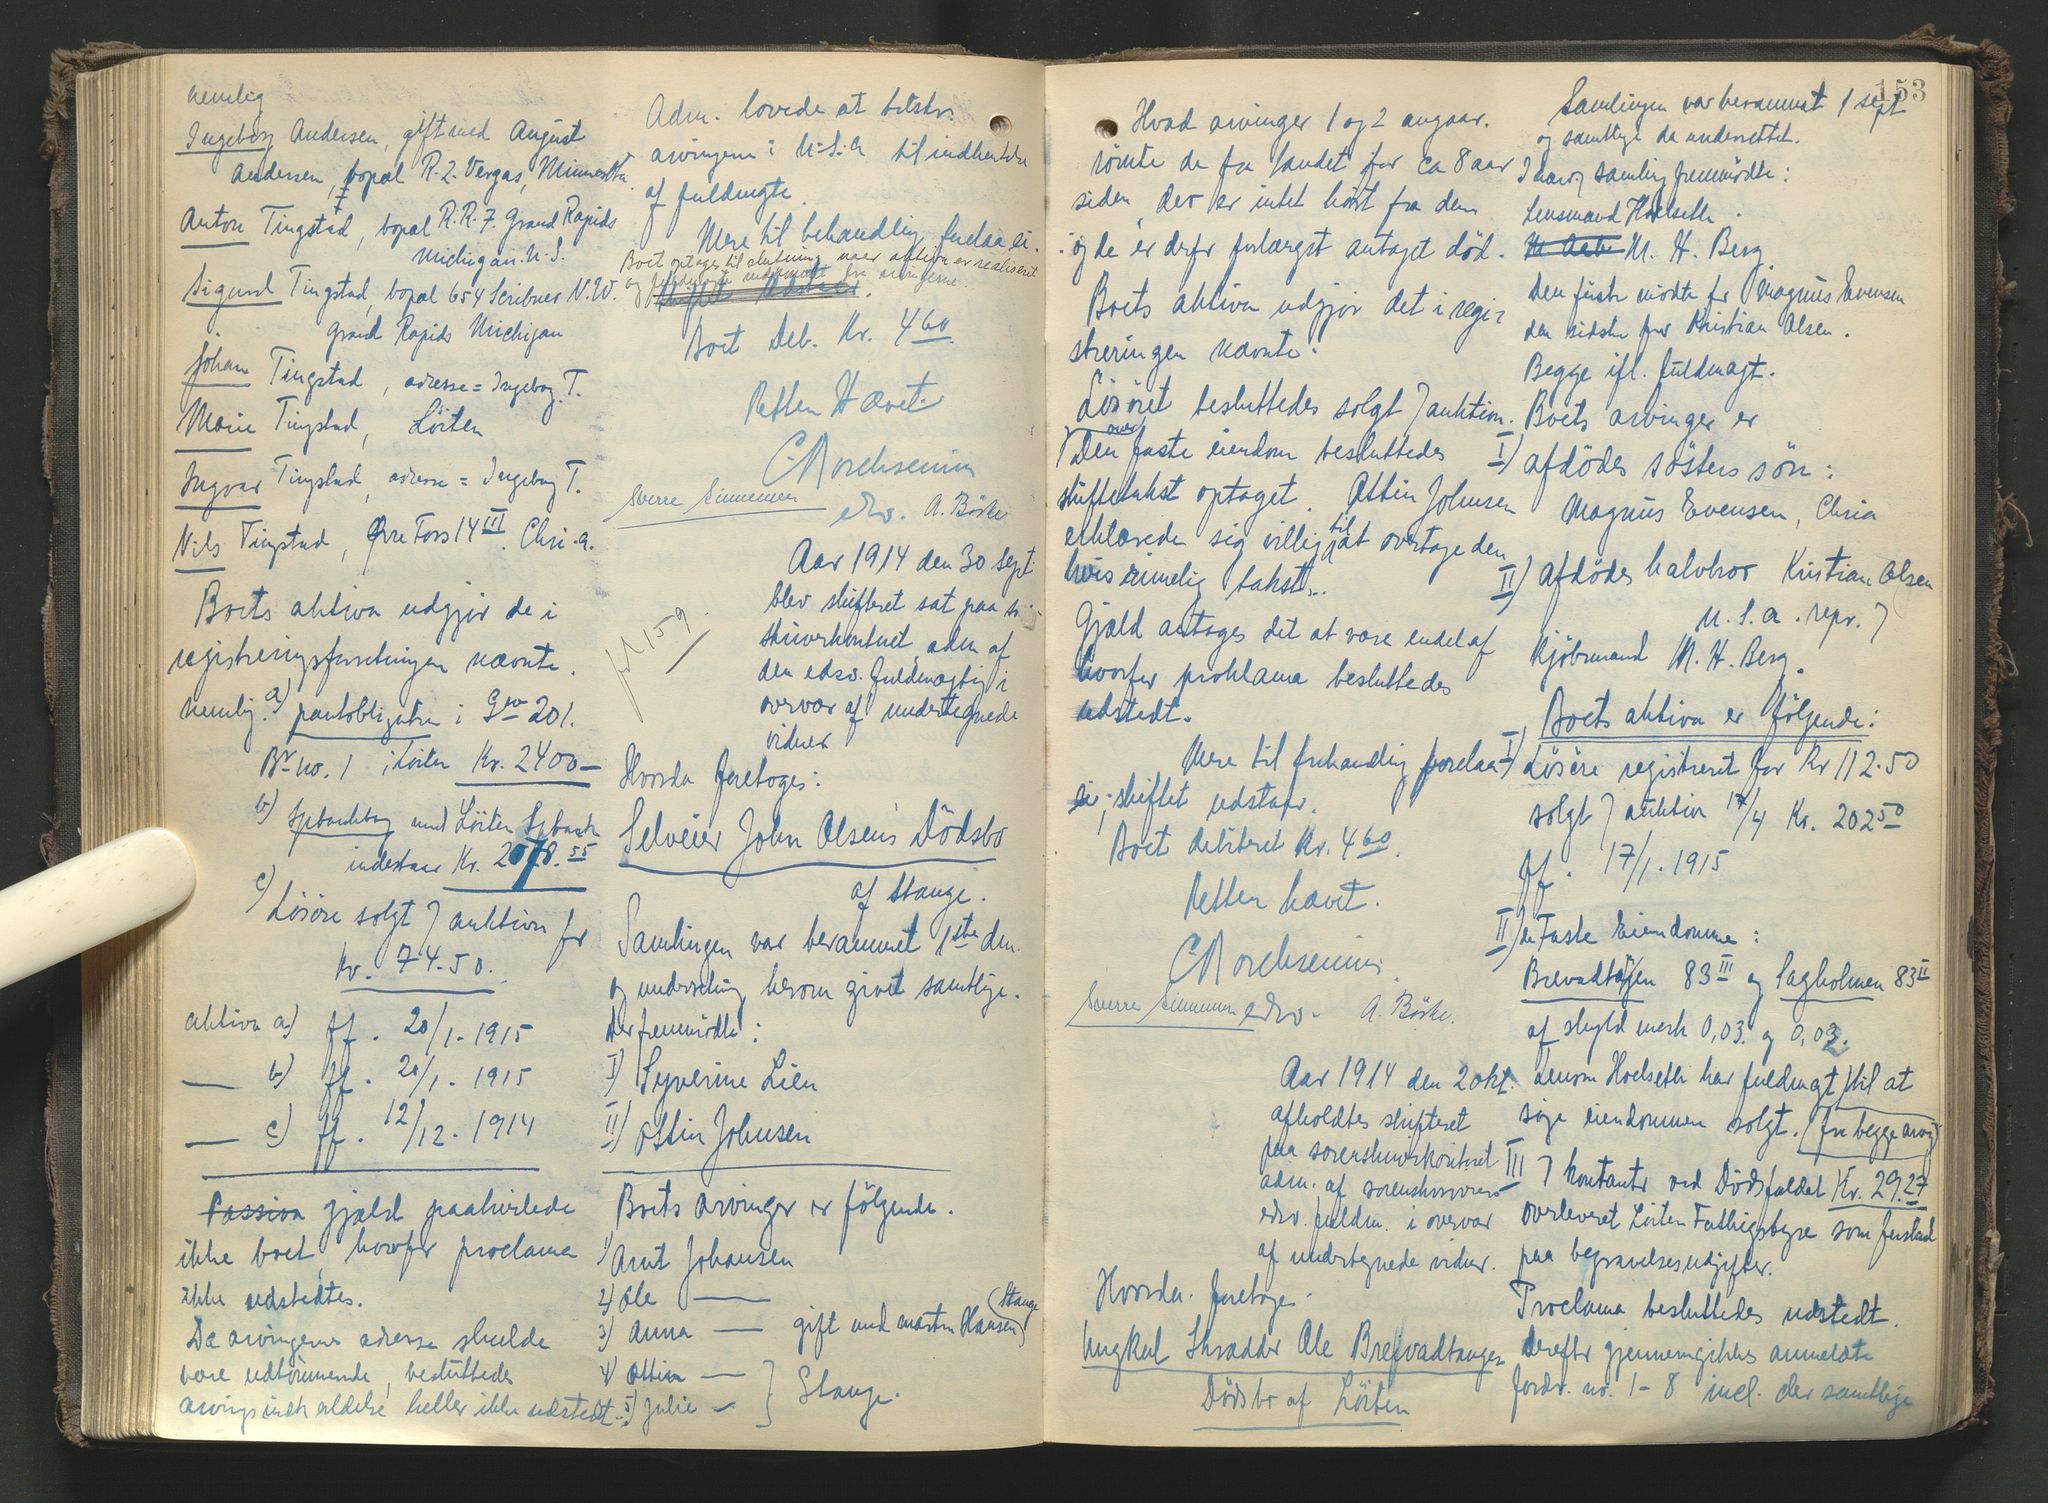 nemlig
Ingeborg Andersen, gift med August
Andersen, bopæl R. 2. Vergas, Minnesotta.
Anton Tingstad, bopæl R. R. 7. Grand Rapids
Michigan. U. S.
Sigurd Tingstad, bopæl 654 Scribner N. W.
Grand Rapids Michigan
Johan Tingstad, adresse = Ingeborg T.
Marie Tingstad, Löiten
Ingvar Tingstad, adresse = Ingeborg T.
Nils Tingstad, Øvre Foss 14 III. Chri.a.
Boets aktiva udgjör de i
registreringsforretningen nævnte.
nemlig. a) pantobligation i Gno 201.
Br no. 1 i Löiten Kr. 2400 —
b) Spbankbog med Löiten Spbank
indestaar Kr. 2078.55
c) Lösöre solgt 7 auktion for
Kr. 74.50.
aktiva a) ff. 20/1. 1915
— b) ff. 20/1. 1915
— c) ff. 12/12. 1914
Passiva gjæld paahvilede
ikke boet, hvorfor proclama
ikke udstedtes.
Da arvingernes adresse skulde
være udtömmende, besluttedes
arvingsindkaldelse heller ikke udstedt.
Adm. lovede at tilskr.
arvingerne i U.S.A til indhentelse
af fuldmagte.
Mere til behandling forelaa ei.
Boet optages til slutning naar aktiva er realiseret
og fuldmagte indkommet fra arvingerne.
Skiftet udstaar.
Boet Deb. Kr. 4 60.
Retten Hævet.
C Borchsenius
edsv.
Sverre Simensen
A. Börke
fol 159
Aar 1914 den 30 sept.
blev skifteret sat paa so-
skriverkontoret adm af
den edsv. fuldmægtig i
overvær af undertegnede
vidner
Hvorda foretoges:
Selveier John Olsens Dödsbo
af Stange.
Samlingen var berammet 1ste dm.
og underretning herom givet samtlige.
Der fremmödte:
I) Syverine Lien
II) Ottin Johnsen
Boets arvinger er fölgende.
1) Arnt Johansen
2) Ole —
3) Anna — gift med Martin Hansen (Stange)
4) Ottin —
5) Julie — } Stange.
153
Hvad arvinger 1 og 2 angaar.
römte de fra landet for ca 8 aar
siden, der er intet hört fra dem
og de er derfor forlængst antaget död.
Boets aktiva udgjör det i regi-
streringen nævnte.
Lösöret besluttedes solgt 7 auktion.
over
Den faste eiendom besluttedes
skiftetakst optaget. Ottin Johnsen
erklærede sig villig til at overtage den
hvis rimelig takst.
Gjæld antages det at være endel af
hvorfor proklama besluttedes
udstedt.
Mere til forhandling forelaa
ei, skiftet udstaar.
Boet debiteret Kr. 4 60.
Retten hævet.
C Borchsenius
Sverre Simensen edsv. A. Börke.
Aar 1914 den 2 okt.
afholdtes skifteret
paa sorenskriverkontoret
adm. af sorenskriverens
edsv. fuldm. i overvær
af undertegnede vidner.
Hvorda foretoges.
Ungkarl Skrædder Ole Brefvadtangen
Dödsbo af Löiten
Samlingen var berammet 1 sept
og samtlige da underrettet.
I dagens samling fremmödte:
Lensmand Hoelseth.
M. H. Berg.
Den förste mödte for Magnus Evensen
den sidste for Kristian Olsen.
Begge ifl. fuldmagt.
Boets arvinger er
I) afdödes sösters sön:
Magnus Evensen, Chria
II) afdödes halvbror Kristian Olsen
U. S. a. repr. 7
Kjöbmand M. H. Berg.
Boets aktiva er fölgende:
I) Lösöre registreret for Kr 112.50
solgt 7 auktion 17/4 Kr. 202 50
ff. 17/1. 1915
II) de Faste Eiendomme:
Brevadtangen 83 III og Sagholmen 83 II
af skyld mark 0,03. og 0,02.
Lensm Hoelseth har fuldmagt til at
söge eiendommen solgt. (fra begge arv)
III 7 kontanter ved Dödsfaldet Kr. 29.27
overleveret Löiten Fattigstyre som forskud
paa begravelsesudgifter.
Proclama besluttedes udstedt.
derefter gjennemgikkes anmeldte
fordr. no. 1–8 incl. der samtlige